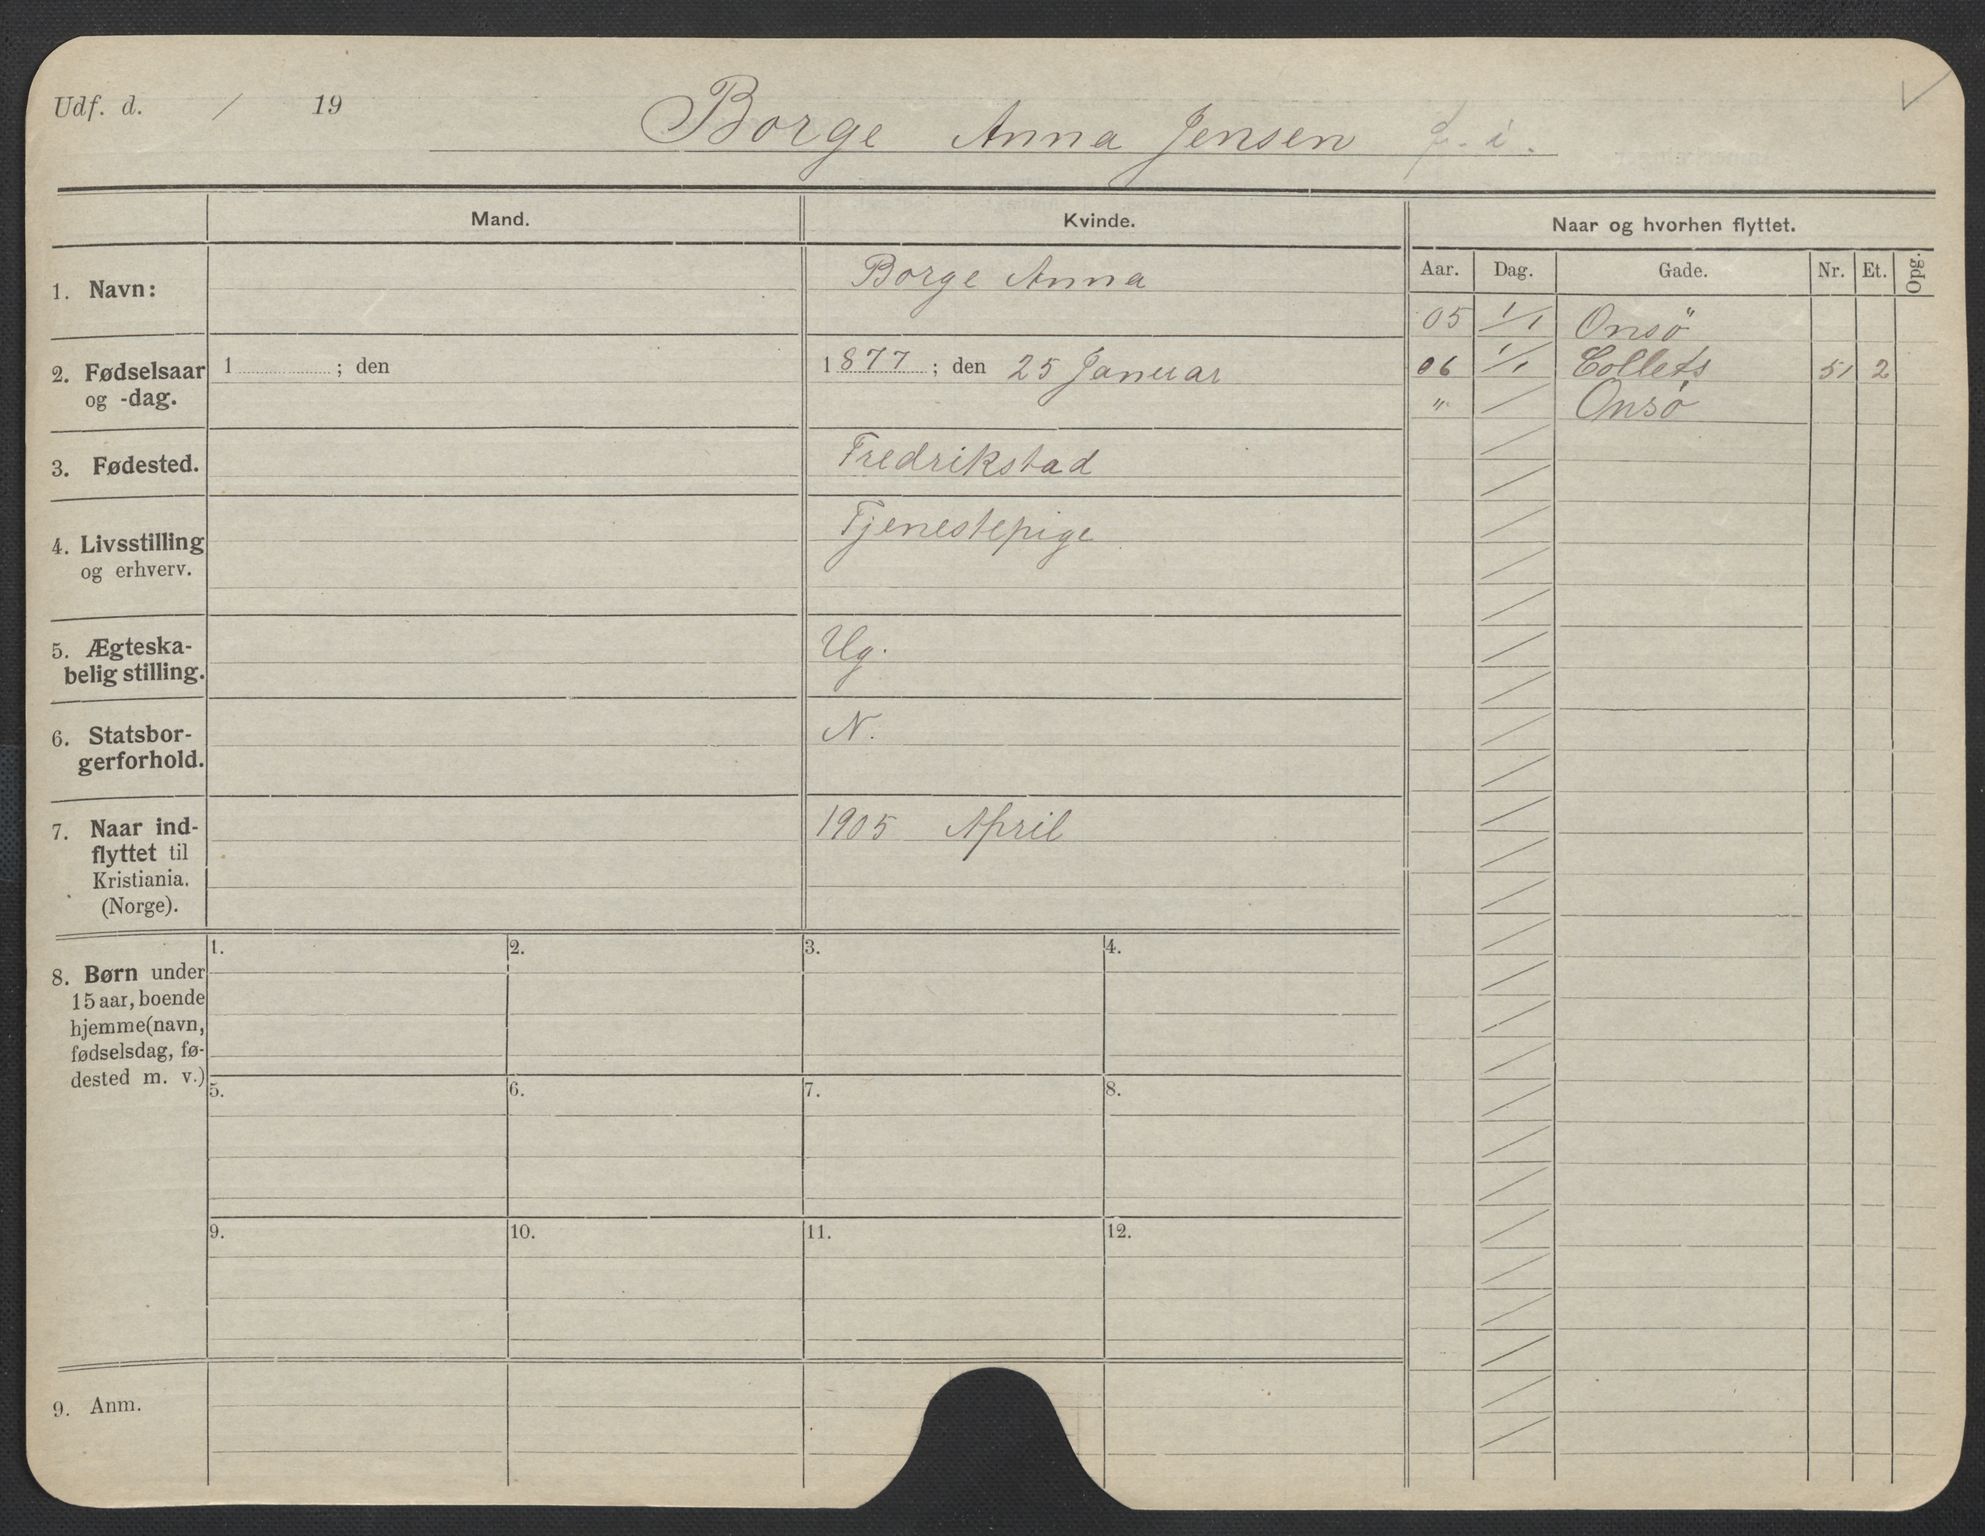 Udf. d. / 19
Borge Anna Jensen f. i.
Mand.
Kvinde.
Naar og hvorhen flyttet.
Aar. Dag. Gade. Nr. Et. Opg.
1. Navn:
Borge Anna
05 1/1 Onsö
2. Fødselsaar
og -dag.
1 ; den
1877 ; den 25 Januar
06 1/1 Collets 51 2
" / Onsø
3. Fødested.
Fredrikstad
4. Livsstilling
og erhverv.
Tjenestepige
5. Ægteska-
belig stilling.
Ug.
6. Statsbor-
gerforhold.
N.
7. Naar ind-
flyttet til
Kristiania.
(Norge).
1905 April
8. Børn under
15 aar, boende
hjemme (navn,
fødselsdag, fø-
dested m. v.)
1. 2. 3. 4.
5. 6. 7. 8.
9. 10. 11. 12.
9. Anm.